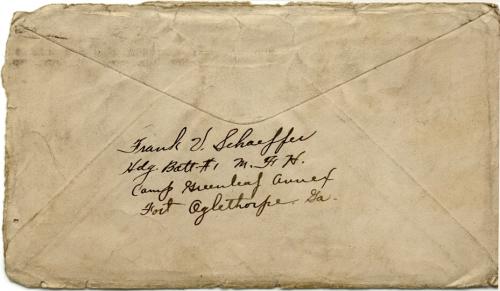 Frank V. Schaeffer
Hdg Batt #1 M. G. H.
Camp Greenleaf Annex
Fort Oglethorpe. Ga.